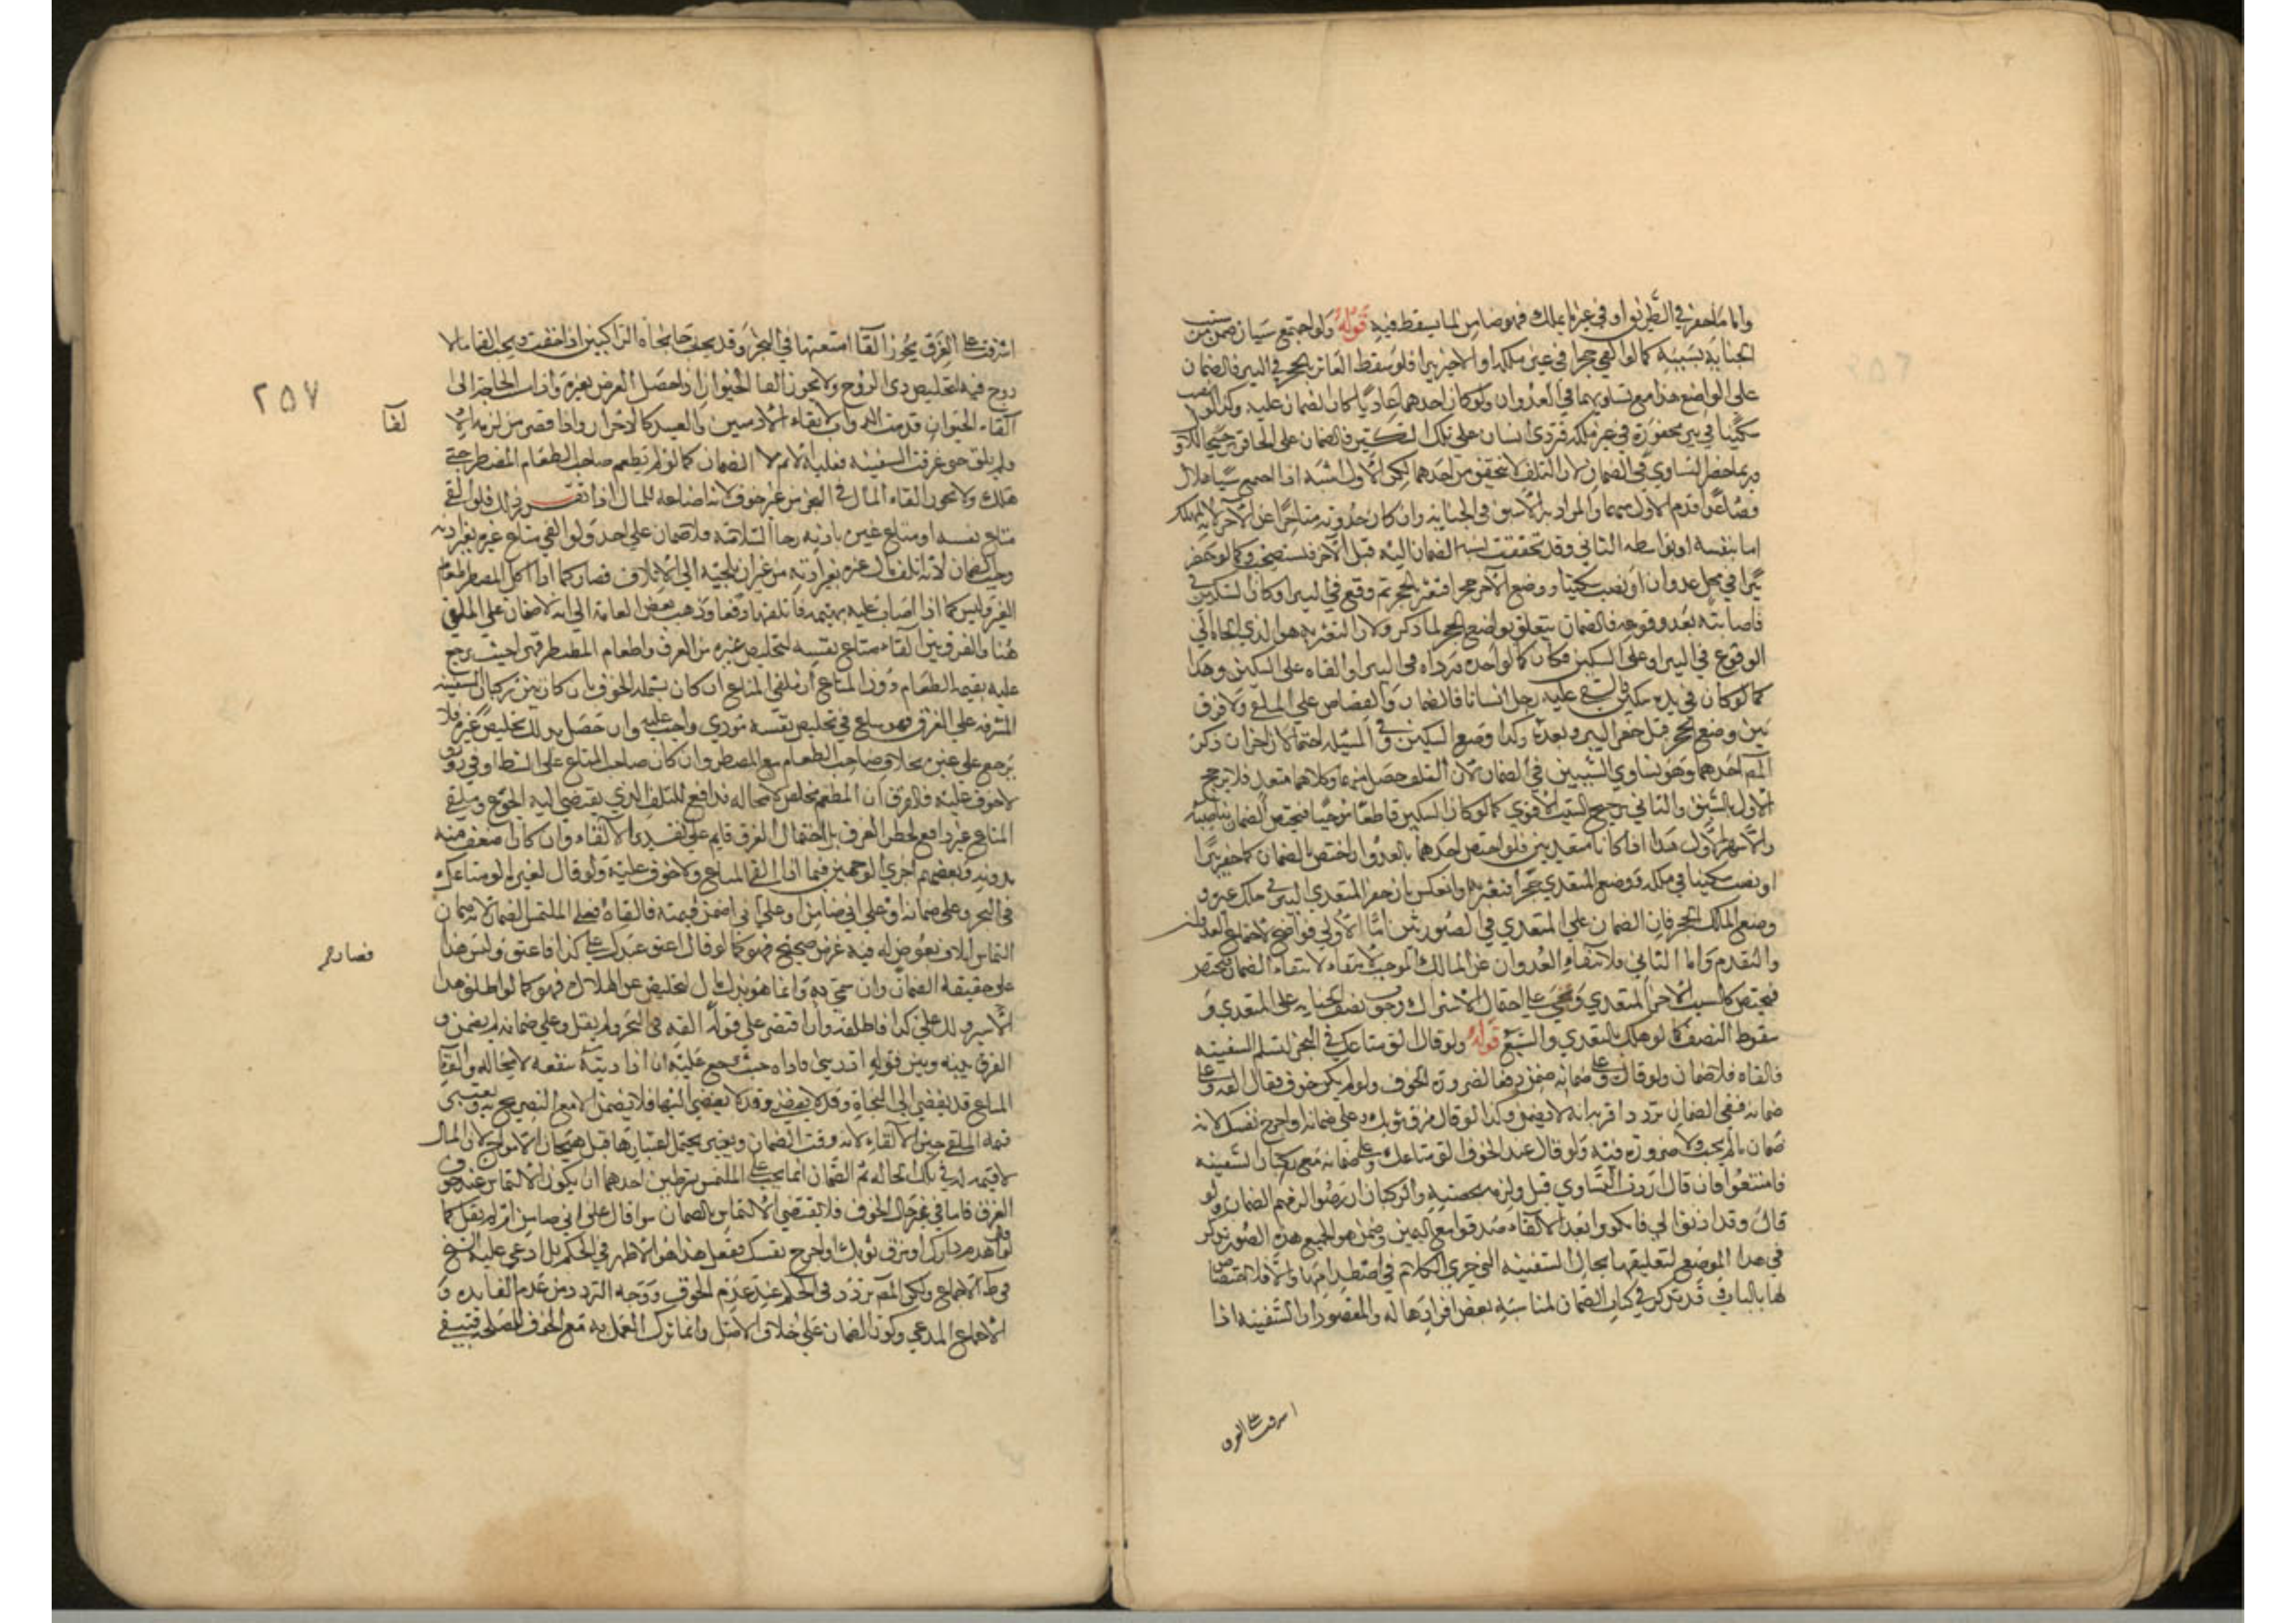 واما ما حفر في الطريق او في غير ما يملك فهو ضامن لما يسقط فيه قوله ولو اجتمع سببان ضمن من سبقت
الجناية بسببه كما لو القي حجرا في غير ملكه او الاخر بيرا فلو سقط العاثر بالحجر في البير فالضمان
على الواضع هذا مع تساويهما في العدوان ولو كان احدهما عاديا كان الضمان عليه وكذا لو نصب
سكينا في بير محفورة في غير ملكه فتردى انسان على تلك السكين فالضمان على الحافر ترجيحا للاول
وربما خطر التساوي في الضمان لان التلف لا يتحقق من احدهما لكن الاول اشبه اذا اجتمع سببا هلاك
فصاعدا قدم الاول منهما والمراد به الاسبق في الجناية وان كان حدوثه متاخرا عن الآخر لانه المهلك
اما بنفسه او بواسطه الثاني وقد تحققت نسبة الضمان اليه قبل الآخر فيستصحب وكما لو حفر
بيرا في محل عدوان او نصب سكينا ووضع الآخر حجرا فتعثر بالحجر ثم وقع في البير او كان السكين في
فاصابته بعد وقوعه فالضمان يتعلق بواضع الحجر لما ذكر ولان التعثر به هو الذي الجاه الي
الوقوع في البير او على السكين فكان كما لو اخذه فرداه في البير او القاه على السكين وهكذا
كما لو كان في يده سكين فالقي عليه رجل انسانا فالضمان والقصاص علي الملقي ولا فرق
بين وضع الحجر قبل حفر البير وبعده وكذا وضع السكين وفي المسئله احتمالان اخران ذكر
المصـ احدهما وهو تساوي السببين في الضمان لان التلف حصل منهما وكلاهما متعد فلا يرجح
الاول بالسبق والثاني ترجيح السبب الاقوي كما لو كان السكين قاطعا موحيا فيختص الضمان بناصبه
والاشهر الاول هذا اذا كانا متعديين فلو اختص احدهما بالعدوان اختص بالضمان كما حفر بيرا
او نصب سكينا في ملكه ووضع المتعدي حجرا فتعثر به وانعكس بان حفر المتعدي البير في ملك غيره و
وضع المالك الحجر فان الضمان علي المتعدي في الصورتين اما الاولي فواضح لاجتماع العدوان
والتقدم واما الثاني فلانتفاء العدوان عن المالك الموجب لانتفاء لانتفاء الضمان فيختص
فيختص كالسبب الاخر المتعدي ويجيء على احتمال الاشتراك وجوب نصف الجنايه على المتعدي و
سقوط النصف كما لو هلك بالتعدي والسبع قوله ولو قال الق متاعك في البحر لتسلم السفينه
فالقاه فلا ضمان ولو قال وعلي ضمانه ضمن دفعا لضرورة الخوف ولو لم يكن خوف فقال القه وعلي
ضمانه ففي الضمان تردد اقربه انه لا يضمن وكذا لو قال مزق ثوبك وعلي ضمانه او اجرح نفسك لانه
ضمان ما لم يجب ولا ضرورة فيه ولو قال عند الخوف الق متاعك وعلي ضمانه مع ركبان السفينه
فامتنعوا فان قال اردت التساوي قبل ولزمه بحصته والركبان ان رضوا لزمهم الضمان ولو
قال وقد اذنوا لي فانكروا بعد الالقاء صدقوا مع اليمين وضمن هو الجميع هذه الصور تذكر
في هذا الموضع لتعليقها بحال السفينه التي جري الكلام في اصطدامها والا فلا اختصاص
لها بالباب وقد تذكر في كتاب الضمان لمناسبة بعض افرادها له والمقصود ان السفينه اذا
اشرفت على الغرق
٢٥٧
اشرفت على الغرق يجوز القآ امتعتها في البحر وقد يجب رجا نجاة الراكبين اذا خفت ويجب القاء ما لا
روح فيه لتخليص ذي الروح ولا يجوز القا الحيوان اذا حصل الغرض بغيره واذا مست الحاجة الى
آلقاء الحيوان قدمت الدواب لابقاء الادميين والعبيد كالاحرار واذا قصر من لزمه الا
لقآ
ولم يلق حتى غرقت السفينه فعليه الاثم لا الضمان كما لو لم يطعم صاحب الطعام المضطر حتى
هلك ولا يجوز القاء المال في البحر من غير خوف لانه اضاعة للمال اذا تقرر ذلك فلو القي
متاع نفسه او متاع غيره باذنه رجا السلامة فلا ضمان على احد ولو القي متاع غيره بغير اذنه
وجب الضمان لانه اتلف مال غيره بغير اذنه من غير ان يلجئه الى الاتلاف فصار كما اذا اكل المضطر طعام
الغير وليس كما اذا اصاب عليه بهيمة فاتلفها دفعا وذهب بعض العامة الى انه لا ضمان على الملقي
هنا والفرق بين القاء متاع نفسه لتخليص غيره من الغرق واطعام المضطر قهرا حيث يرجع
عليه بقيمة الطعام دون المتاع ان ملقي المتاع ان كان يشمله الخوف بان كان من ركبان السفينه
المشرفه علي الغرق فهو ساع في تخليص نفسه مؤدي واجب عليه وان حصل بذلك تخليص غيره فلا
يرجع علي غيره بخلاف صاحب الطعام مع المضطر وان كان صاحب المتاع علي الشط او في زورق
لا خوف عليه فالفرق ان المطعم مخلص لا محاله ودافع للتلف الذي يفضي اليه الجوع وملقي
المتاع غير دافع لخطر الغرق بل احتمال الغرق قايم علي تقدير الالقاء وان كان اضعف منه
بدونه وبعضهم اجري الوجهين فيما اذا القي المتاع ولا خوف عليه ولو قال لغيره الق متاعك
في البحر وعلي ضمانه او علي اني ضامن او علي اني اضمن قيمته فالقاه فعلي الملتمس الضمان لانه ضمان
التماس اتلاف بعوض له فيه غرض صحيح فهو كما لو قال اعتق عبدك على كذا فاعتق وليس هذا
فصار
على حقيقة الضمان وان سمي به وانما هو بذل مال لتخليص عن الهلاك فهو كما لو اطلق هذا
الاسير ولك علي كذا فاطلقه وان اقتصر على قوله القه في البحر ولم يقل وعلي ضمانه لم يضمن و
الفرق بينه وبين قوله اد ديني فاداه حيث يرجع عليه ان اداء دينه منفعة لا محاله والقآ
المتاع قد يفضي الى النجاة وقد لا يفضي فلا يضمن الا مع التصريح به ويعتبر
قيمة الملقي حين الالقاء لانه وقت الضمان ويحتمل اعتبارها قبل هيجان الامواج لان المال
لا قيمة له في تلك الحاله ثم الضمان انما يجب على الملتمس بشرطين احدهما ان يكون الالتماس عند خوف
الغرق فاما في غير حال الخوف فلا يقتضي الالتماس الضمان سوا قال علي اني ضامن ام لم يقل كما
لو قال اهدم دارك او مزق ثوبك او اجرح نفسك ففعل هذا هو الاظهر في الحكم بل ادعي عليه الشيخ
في ط الاجماع ولكن المصـ تردد في الحكم عند عدم الخوف ووجه التردد من عدم الفايده و
الاجماع المدعي وكون الضمان على خلاف الاصل وانما ترك العمل به مع الخوف للمصلحة فيبقي